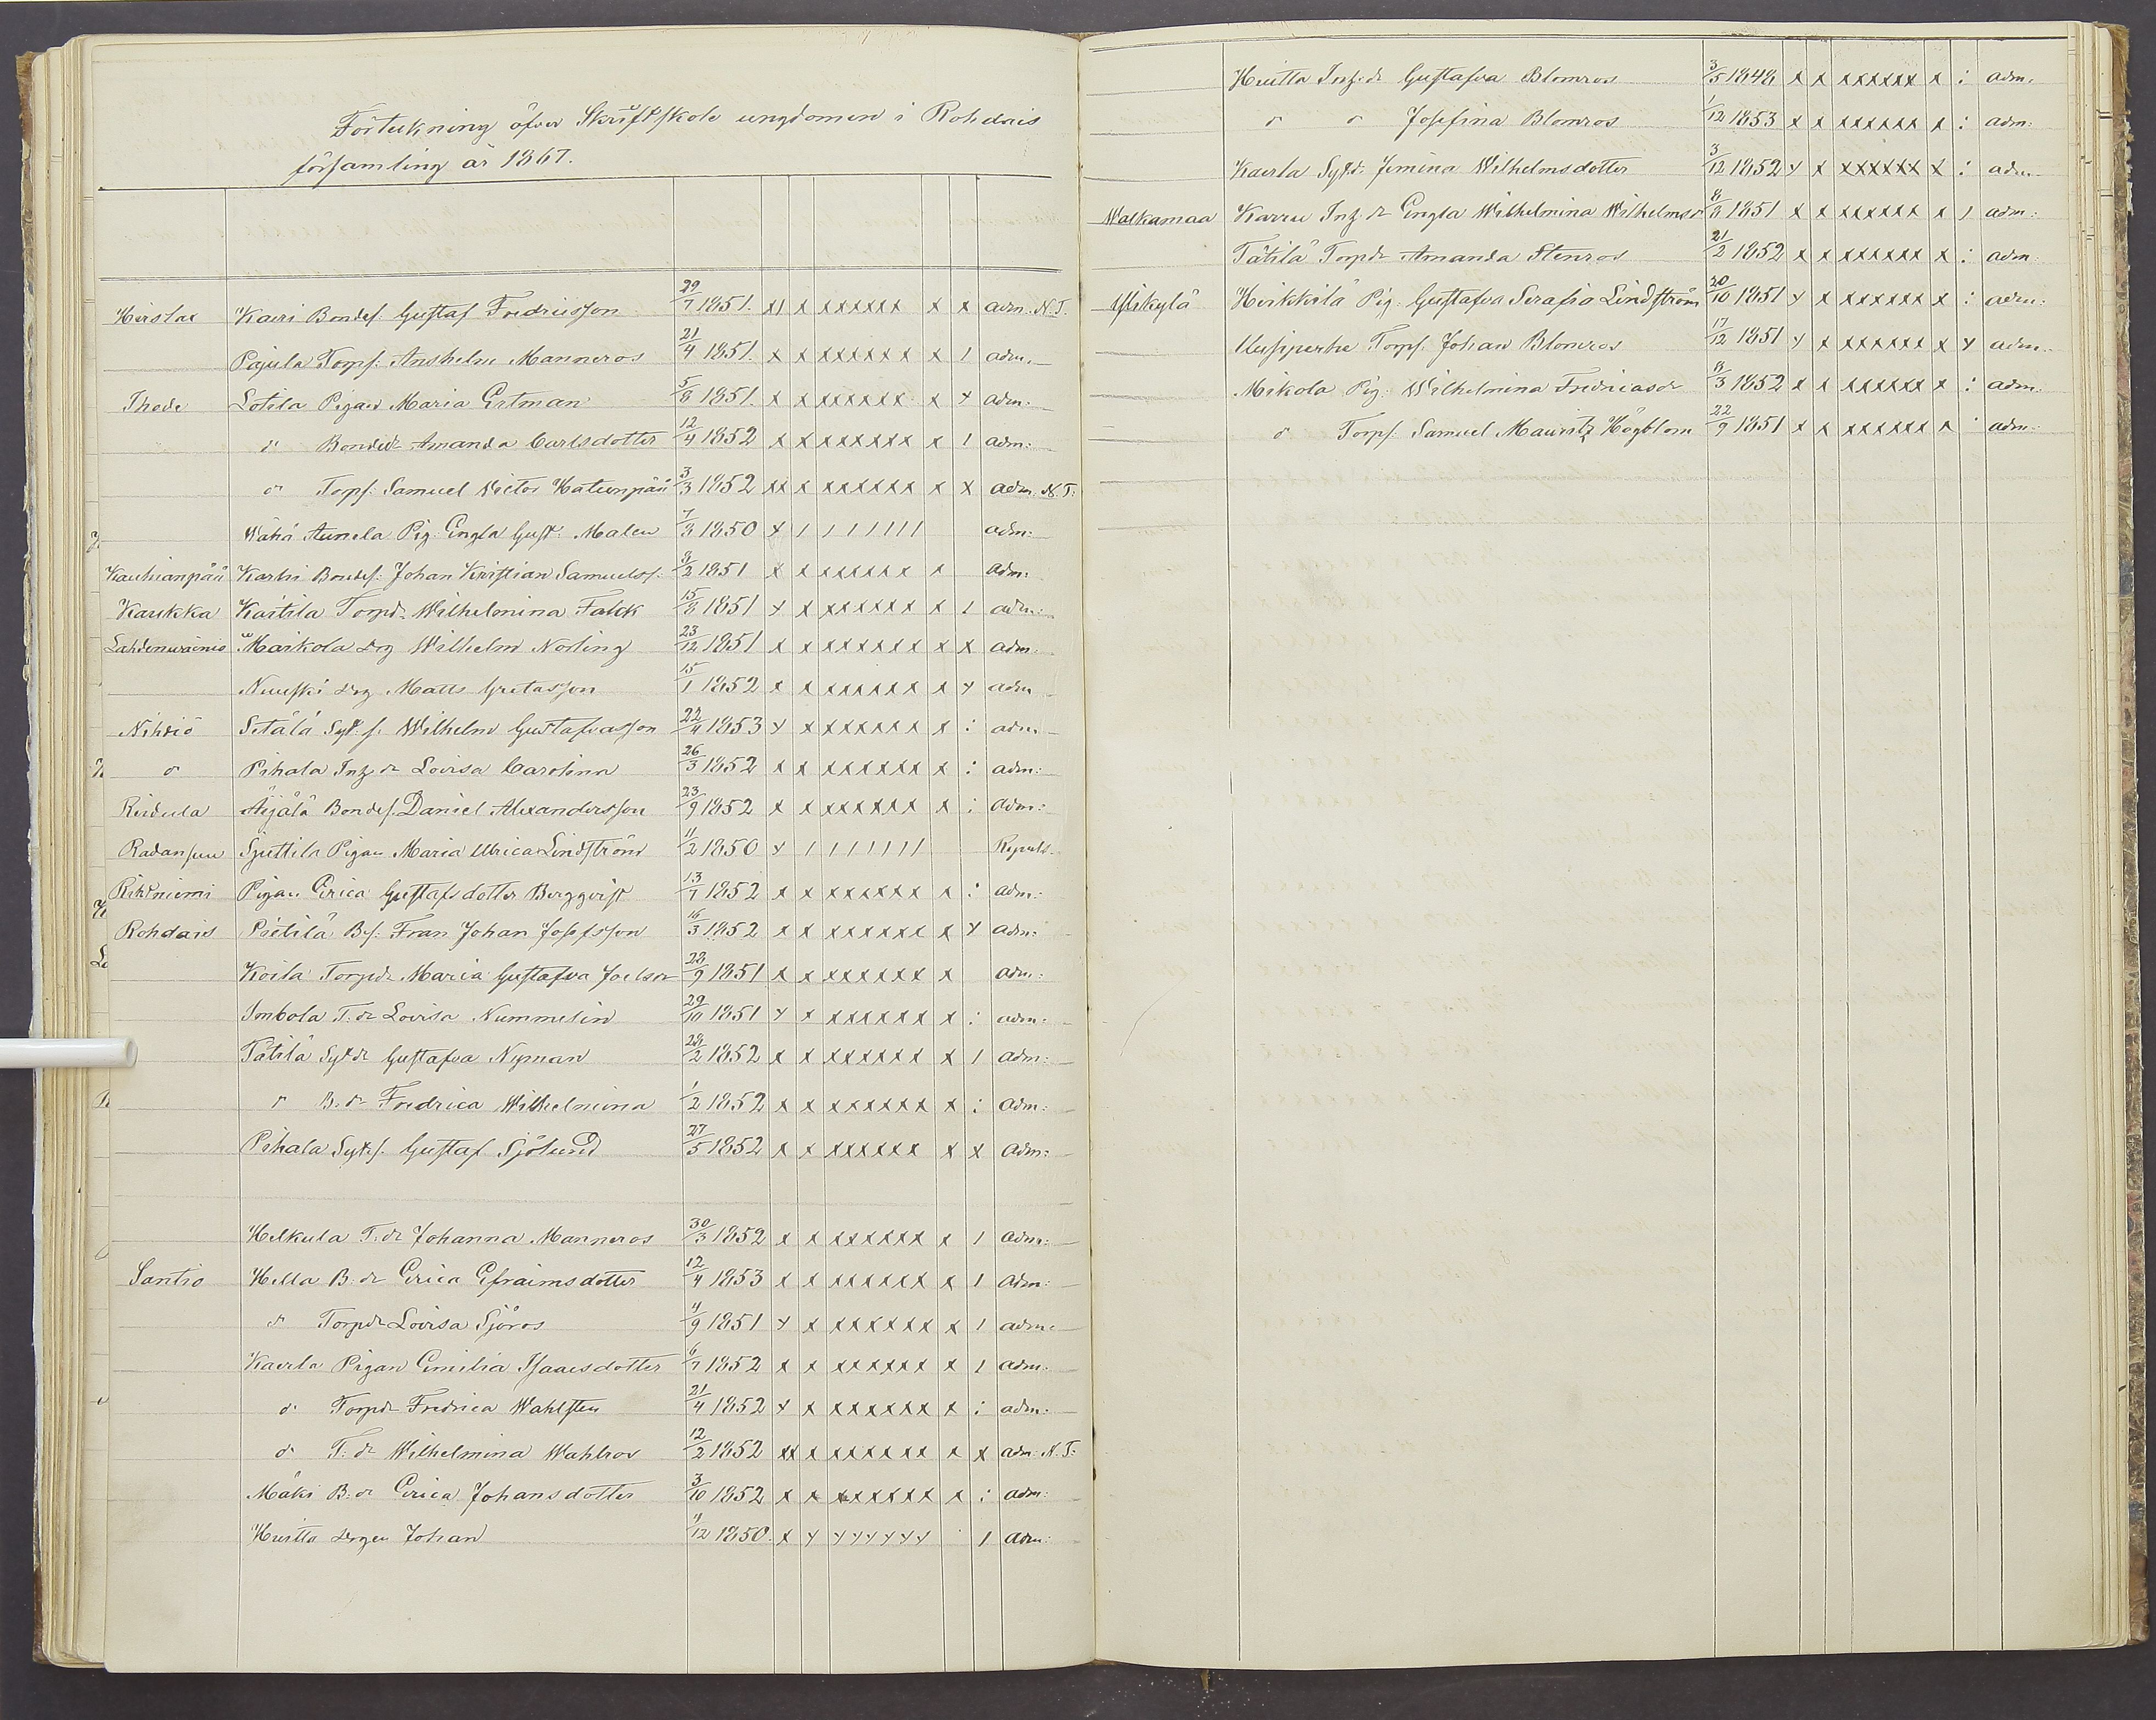 Förtekning öfver Skriftskole ungdomen i Rohdais
församling år 1867.
Hirslax Kairi Bondes. Gustaf Fredricsson 29/7 1851. xx x xxxxxx x x adm. N.T.
Pajula Torps. Anshelm Manneros 21/4 1851. x x xxxxxx x 1 adm.
Ihode Lotila Pigan Maria Ertman 5/8 1851. x x xxxxxx x x adm:
d:o Bondedr Amanda Carlsdotter 12/4 1852 x x xxxxxx x 1 adm:
d:o Torps: Samuel Victor Katunpää 3/3 1852 xx x xxxxxx x x adm. N.T:
Wähä Aunela Pig. Engla Gust: Malen 7/3 1850 x 1 1 1 1 1 1 1 adm:
Kauhianpää Karhi Bondes: Johan Kristian Samuelss. 8/2 1851 x x xxxxxx x adm:
Kaukka Kaitila Torpdr Wilhelmina Falck 15/8 1851 x x xxxxxx x 1 adm:
Lahdenwainio Maikola drg Wilhelm Norling 23/12 1851 x x xxxxxx x x adm:
Nuuski drg Matts Gretasson 15/1 1852 x x xxxxxx x x adm
Nihdiö Sätälä Syt. s. Wilhelm Gustafvasson 22/4 1853 x x xxxxxx x : adm
d:o Pihala Inh. dr Lovisa Carolina 26/3 1852 x x xxxxxx x : adm:
Reidula Äijälä Bondes. Daniel Alexandersson 23/9 1852 x x xxxxxx x : adm:
Radansuu Sjuttila Pigan Maria Ulrica Lindström 11/2 1850 x 1 1 1 1 1 1 1 Repuls.
Rihtniemi Pigan Erica Gustafsdotter Bergqvist 13/7 1852 x x xxxxxx x : adm:
Rohdais Pietilä Bs: Frans Johan Josefsson 16/3 1852 x x xxxxxx x x adm:
Koila Torpdr Maria Gustafva Joelsdr 28/9 1851 x x xxxxxx x adm:
Imbola T. dr Lovisa Nummelin 29/10 1851 x x xxxxxx x : adm:
Tätilä Sytdr Gustafva Nyman 28/2 1852 x x xxxxxx x 1 adm:
d:o B. dr Fredrica Wilhelmina 1/2 1852 x x xxxxxx x : adm:
Pihala Syts. Gustaf Sjölund 27/5 1852 x x xxxxxx x x adm:
Helkula T. dr Johanna Manneros 30/3 1852 x x xxxxxx x 1 adm:
Santio Hella B: dr Erica Efraimsdotter 12/4 1853 x x xxxxxx x 1 adm:
d:o Torpdr Lovisa Sjöros 4/9 1851 x x xxxxxx x 1 adm:
Kaerla Pigan Emilia Isaacsdotter 6/7 1852 x x xxxxxx x 1 adm:
d:o Torpdr Fredrica Wahlsten 21/4 1852 x x xxxxxx x : adm:
d:o T: dr Wilhelmina Wahlros 12/2 1852 xx x xxxxxx x x adm: N.T:
Mäki B: dr Erica Johansdotter 3/10 1852 x x xxxxxx x : adm:
Huitto drgen Johan 4/12 1850. x x xxxxxx 1 adm:
Huitta Inh: dr Gustafva Blomros 3/5 1848 x x xxxxxx x : adm.
d:o d:o Josefina Blomros 1/12 1853 x x xxxxxx x : adm:
Kaerla Sytdr Jemina Wilhelmsdotter 3/12 1852 x x xxxxxx x : adm
Walkamaa Karru Inh dr Engla Wilhelmina Wilhelmsdr 8/8 1851 x x xxxxxx x 1 adm:
Tätilä Torpdr Amanda Stenros 21/2 1852 x x xxxxxx x : adm.
Ylikylä Heikkilä Pig. Gustafva Serafia Lindström 20/10 1851 x x xxxxxx x : adm:
Uusipertu Torps. Johan Blomros 17/12 1851 x x xxxxxx x x adm.
Mikola Pig. Wilhelmina Fredricasdr 8/3 1852 x x xxxxxx x : adm:
d:o Torps. Samuel Mauritz Högblom 22/9 1851 x x xxxxxx x : adm: